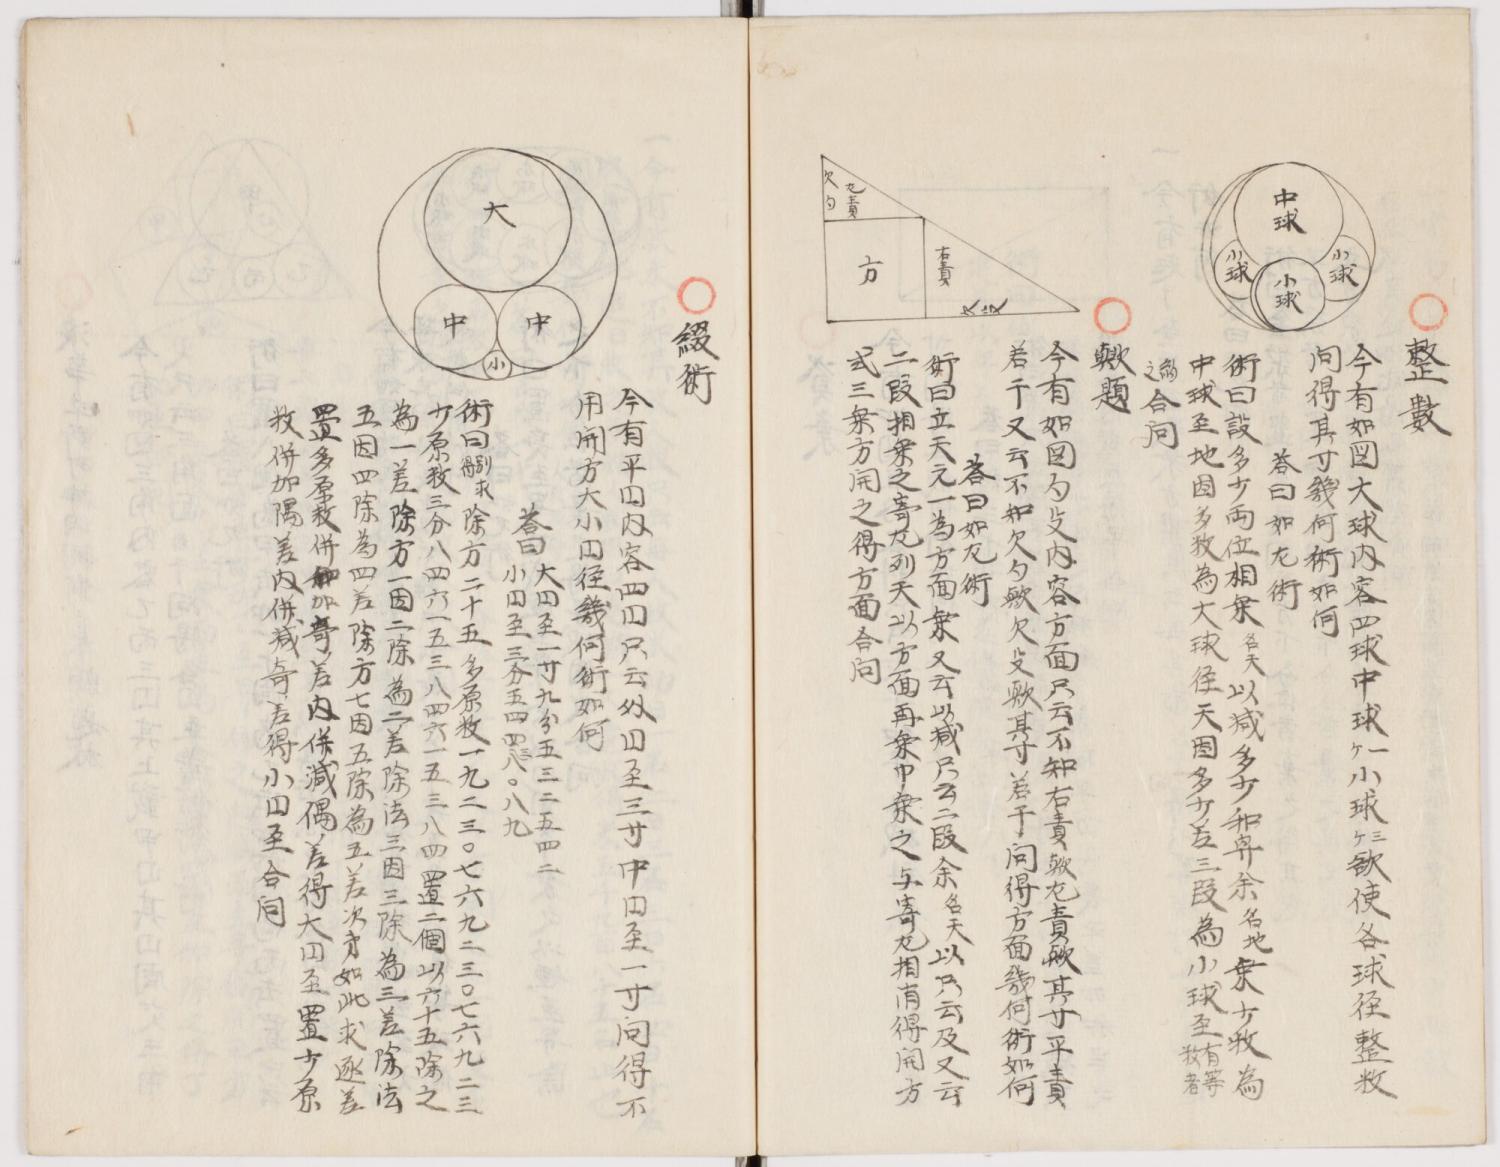 整數
今有如図大球内容四球中球一ケ小球三ケ欲使各球径整数
問得其寸幾何術如何
答曰如左術
術曰設多少両位相乗名天以減多少和冪余名地乗少数為
中球至地因多数為大球径天因多少差三段為小球至有等数者
約之合問
中球
小球
小球
小球
歟題
今有如図勾殳内容方面只云不知右責歟左責歟其寸平責
若干又云不知欠勾歟欠殳歟其寸若干問得方面幾何術如何
答曰如左術
術曰立天元一為方面乗又云以減只云二段余名天以只云及又云
二段相乗之寄左列天以方面再乗巾乗之与寄左相消得開方
式三乗方開之得方面合問
欠勾
左責
方
右責
欠殳
綴術
今有平円内容四円只云外円至三寸中円至一寸問得不
用開方大小円径幾何術如何
答曰大円至一寸九分五三二五四二
小円至三分五四四八〇八九
術曰別求得除方二十五多原数一九二三〇七六九二三〇七六九二三
少原数三分八四六一五三八四六一五三八四置二個以六十五除之
為一差除方一因二除為二差除法三因三除為三差除法
五因四除為四差除方七因五除為五差次才如此求逐差
置多原数併加奇差内併減偶差得大円至置少原
数併加隅差内併減奇差得小円至合問
大
中
中
小